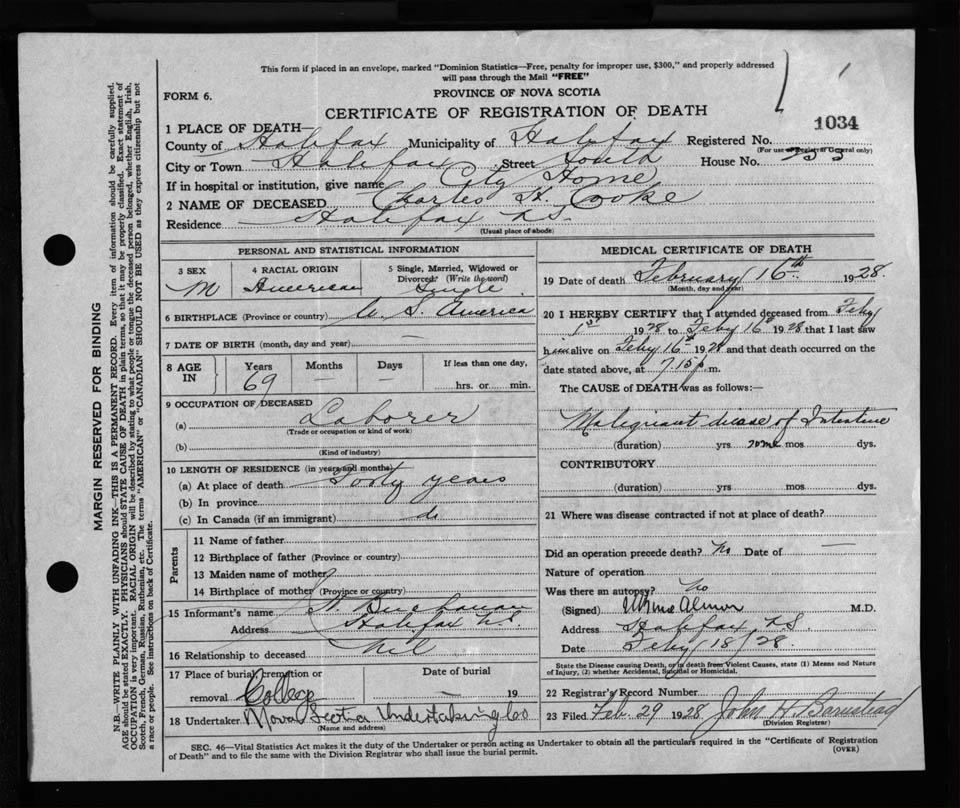 This form if placed in an envelope, marked "Dominion Statistics—Free, penalty for improper use, $300," and properly addressed
will pass through the Mail "FREE"
FORM 6.
PROVINCE OF NOVA SCOTIA
CERTIFICATE OF REGISTRATION OF DEATH
1034
1 PLACE OF DEATH—
County of Halifax Municipality of Halifax Registered No.
(For use of Registrar General only)
City or Town Halifax Street South House No.
If in hospital or institution, give name City Home
2 NAME OF DECEASED Charles H. Cooke
Residence Halifax N.S.
(Usual place of abode)
PERSONAL AND STATISTICAL INFORMATION
3 SEX 4 RACIAL ORIGIN 5 Single, Married, Widowed or
Divorced: (Write the word)
M American Single
6 BIRTHPLACE (Province or country) U.S. America
7 DATE OF BIRTH (month, day and year) —
8 AGE IN Years Months Days If less than one day,
69 — — hrs. or min.
9 OCCUPATION OF DECEASED
(a) Laborer
(Trade or occupation or kind of work)
(b)
(Kind of industry)
10 LENGTH OF RESIDENCE (in years and months)
(a) At place of death Forty years
(b) In province
(c) In Canada (if an immigrant) do
Parents
11 Name of father
12 Birthplace of father (Province or country)
13 Maiden name of mother
14 Birthplace of mother (Province or country)
15 Informant's name H. Buchanan
Address Halifax N.S.
16 Relationship to deceased Nil
17 Place of burial cremation or Date of burial
removal College — 19
18 Undertaker Nova Scotia Undertaking Co
(Name and address)
MEDICAL CERTIFICATE OF DEATH
19 Date of death February 16th 1928.
(Month, day and year)
20 I HEREBY CERTIFY that I attended deceased from Feby
1st 1928 to Feby 16th 1928 that I last saw
him alive on Feby 16th 1928 and that death occurred on the
date stated above, at 7.15 p m.
The CAUSE of DEATH was as follows:
Malignant disease of Intestine
(duration) yrs some mos dys.
CONTRIBUTORY
(duration) yrs. mos. dys.
21 Where was disease contracted if not at place of death?
Did an operation precede death? No Date of —
Nature of operation
Was there an autopsy? No
(Signed) Almon M.D.
Address Halifax N.S.
Date Feby 18/28.
State the Disease causing Death, or in death from Violent Causes, state (1) Means and Nature
of Injury, (2) whether Accidental, Suicidal or Homicidal.
22 Registrar's Record Number
23 Filed Feb. 29 1928 John H. Barnstead
(Division Registrar)
SEC. 46—Vital Statistics Act makes it the duty of the Undertaker or person acting as Undertaker to obtain all the particulars required in the "Certificate of Registration
of Death" and to file the same with the Division Registrar who shall issue the burial permit.
(OVER)
MARGIN RESERVED FOR BINDING
N.B.—WRITE PLAINLY WITH UNFADING INK—THIS IS A PERMANENT RECORD. Every item of information should be carefully supplied.
AGE should be stated EXACTLY. PHYSICIANS should STATE CAUSE OF DEATH in plain terms, so that it may be properly classified. Exact statement of
OCCUPATION is very important. RACIAL ORIGIN will be described by stating to what people or tongue the deceased person belonged, whether English, Irish,
Scotch, French, German, Russian, Ruthenian, etc. The terms "AMERICAN" or "CANADIAN" SHOULD NOT BE USED as they express citizenship but not
a race or people. See instructions on back of Certificate.